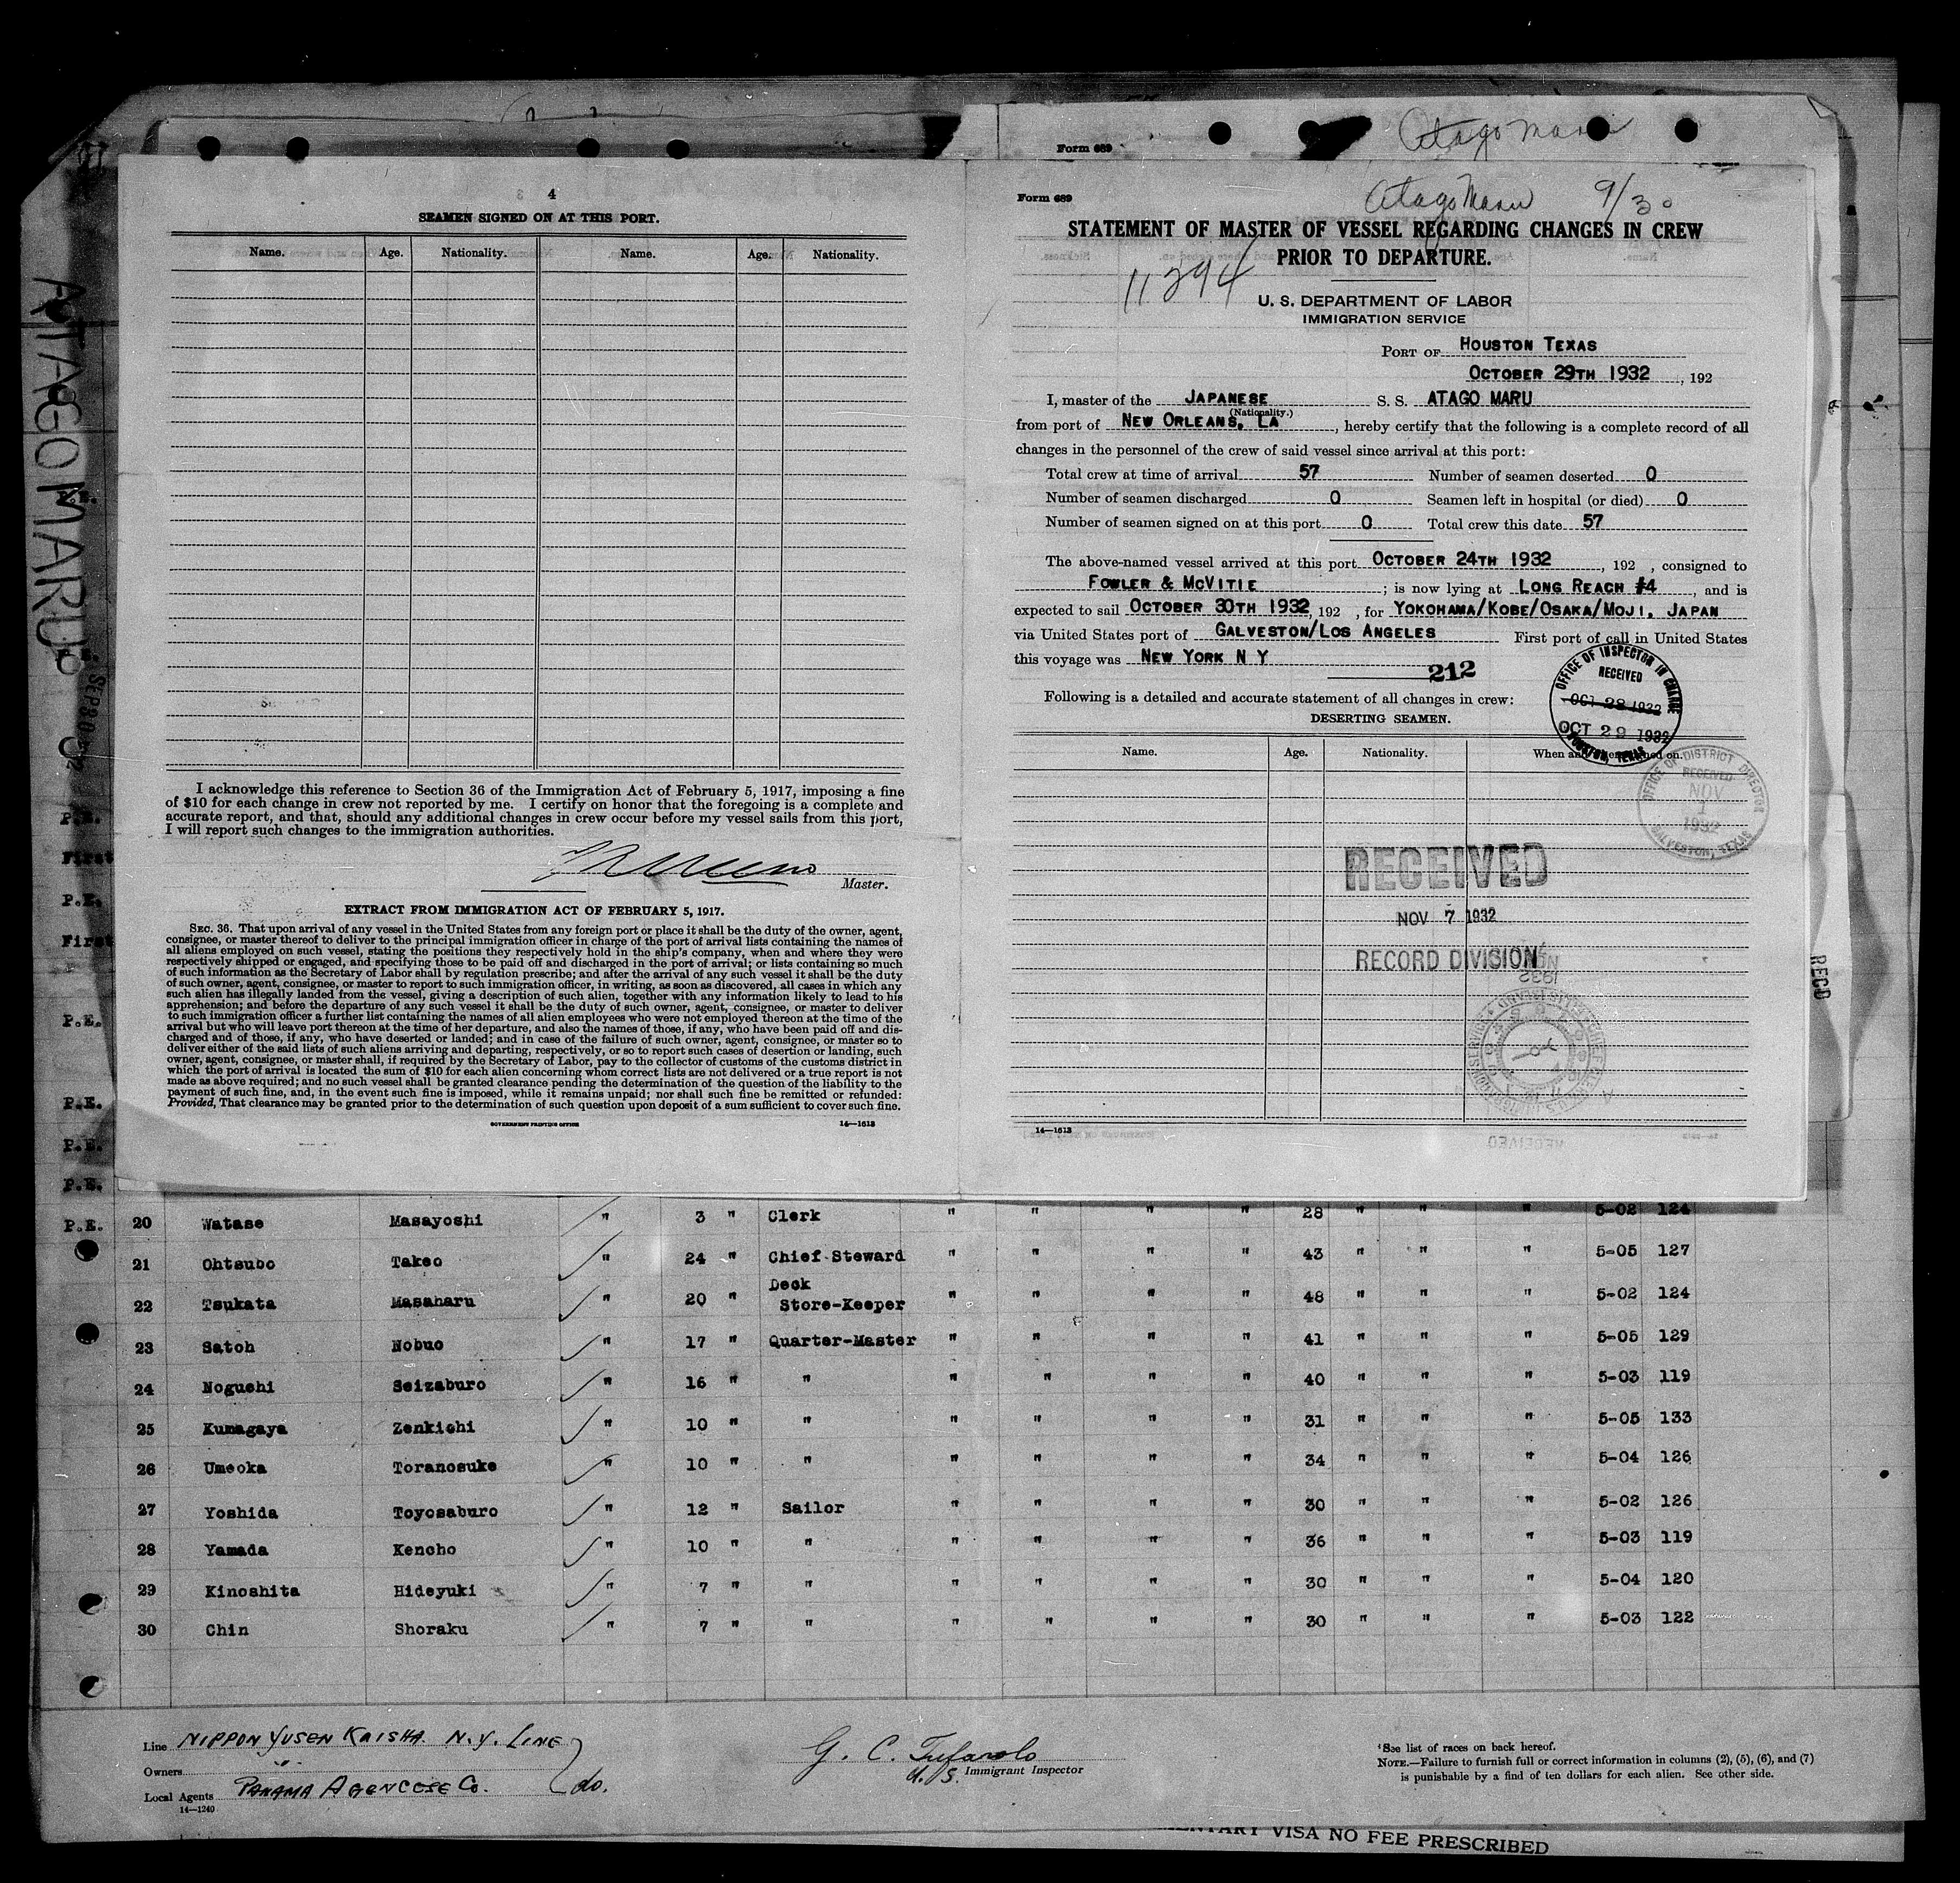 Atago Maru
Form 689
4
SEAMEN SIGNED ON AT THIS PORT.
Name. Age. Nationality. Name. Age. Nationality.
I acknowledge this reference to Section 36 of the Immigration Act of February 5, 1917, imposing a fine
of $10 for each change in crew not reported by me. I certify on honor that the foregoing is a complete and
accurate report, and that, should any additional changes in crew occur before my vessel sails from this port,
I will report such changes to the immigration authorities.
Master.
EXTRACT FROM IMMIGRATION ACT OF FEBRUARY 5, 1917.
SEC. 36. That upon arrival of any vessel in the United States from any foreign port or place it shall be the duty of the owner, agent,
consignee, or master thereof to deliver to the principal immigration officer in charge of the port of arrival lists containing the names of
all aliens employed on such vessel, stating the positions they respectively hold in the ship's company, when and where they were
respectively shipped or engaged, and specifying those to be paid off and discharged in the port of arrival; or lists containing so much
of such information as the Secretary of Labor shall by regulation prescribe; and after the arrival of any such vessel it shall be the duty
of such owner, agent, consignee, or master to report to such immigration officer, in writing, as soon as discovered, all cases in which any
such alien has illegally landed from the vessel, giving a description of such alien, together with any information likely to lead to his
apprehension; and before the departure of any such vessel it shall be the duty of such owner, agent, consignee, or master to deliver
to such immigration officer a further list containing the names of all alien employees who were not employed thereon at the time of the
arrival but who will leave port thereon at the time of her departure, and also the names of those, if any, who have been paid off and dis-
charged and of those, if any, who have deserted or landed; and in case of the failure of such owner, agent, consignee, or master so to
deliver either of the said lists of such aliens arriving and departing, respectively, or so to report such cases of desertion or landing, such
owner, agent, consignee, or master shall, if required by the Secretary of Labor, pay to the collector of customs of the customs district in
which the port of arrival is located the sum of $10 for each alien concerning whom correct lists are not delivered or a true report is not
made as above required; and no such vessel shall be granted clearance pending the determination of the question of the liability to the
payment of such fine, and, in the event such fine is imposed, while it remains unpaid; nor shall such fine be remitted or refunded:
Provided, That clearance may be granted prior to the determination of such question upon deposit of a sum sufficient to cover such fine.
GOVERNMENT PRINTING OFFICE 14—1613
Form 689
Atago Maru 9/30
STATEMENT OF MASTER OF VESSEL REGARDING CHANGES IN CREW
PRIOR TO DEPARTURE.
11294
U. S. DEPARTMENT OF LABOR
IMMIGRATION SERVICE
PORT OF HOUSTON TEXAS
OCTOBER 29TH 1932, 192
I, master of the JAPANESE S. S. ATAGO MARU
(Nationality.)
from port of NEW ORLEANS, LA, hereby certify that the following is a complete record of all
changes in the personnel of the crew of said vessel since arrival at this port:
Total crew at time of arrival 57 Number of seamen deserted 0
Number of seamen discharged 0 Seamen left in hospital (or died) 0
Number of seamen signed on at this port 0 Total crew this date 57
The above-named vessel arrived at this port OCTOBER 24TH 1932, 192 , consigned to
FOWLER & MCVITIE; is now lying at LONG REACH #4, and is
expected to sail OCTOBER 30TH 1932, 192 , for YOKOHAMA/KOBE/OSAKA/MOJI. JAPAN
via United States port of GALVESTON/LOS ANGELES First port of call in United States
this voyage was NEW YORK N Y
212
Following is a detailed and accurate statement of all changes in crew:
DESERTING SEAMEN.
OFFICE OF INSPECTOR IN CHARGE
RECEIVED
OCT 28 1932
OCT 29 1932
HOUSTON, TEXAS
Name. Age. Nationality.
OFFICE OF DISTRICT DIRECTOR
RECEIVED
NOV
1
1932
GALVESTON, TEXAS
RECEIVED
NOV 7 1932
RECORD DIVISION
14—1613
ATAGO MARU
SEP 30
RECD
P.E.
P.E.
First
P.E.
First
P.E.
P.E.
P.E.
P.E.
P.E. 20 Watase Masayoshi " 3 " Clerk " " " " 28 " " " 5-02 124
21 Ohtsubo Takeo " 24 " Chief Steward " " " " 43 " " " 5-05 127
22 Tsukata Masaharu " 20 " Deck Store-Keeper " " " " 48 " " " 5-02 124
23 Satoh Nobuo " 17 " Quarter-Master " " " " 41 " " " 5-05 129
24 Noguchi Seizaburo " 16 " " " " " " 40 " " " 5-03 119
25 Kumagaya Zenkichi " 10 " " " " " " 31 " " " 5-05 133
26 Umeoka Toranosuke " 10 " " " " " " 34 " " " 5-04 126
27 Yoshida Toyosaburo " 12 " Sailor " " " " 30 " " " 5-02 126
28 Yamada Kencho " 10 " " " " " " 36 " " " 5-03 119
29 Kinoshita Hideyuki " 7 " " " " " " 30 " " " 5-04 120
30 Chin Shoraku " 7 " " " " " " 30 " " " 5-03 122
Line NIPPON YUSEN KAISHA N.Y. LINE
Owners " do.
Local Agents PANAMA AGENCOSE Co.
14—1240
G. C. Tufarolo
U. S. Immigrant Inspector
¹See list of races on back hereof.
NOTE.—Failure to furnish full or correct information in columns (2), (5), (6), and (7)
is punishable by a find of ten dollars for each alien. See other side.
VISA NO FEE PRESCRIBED